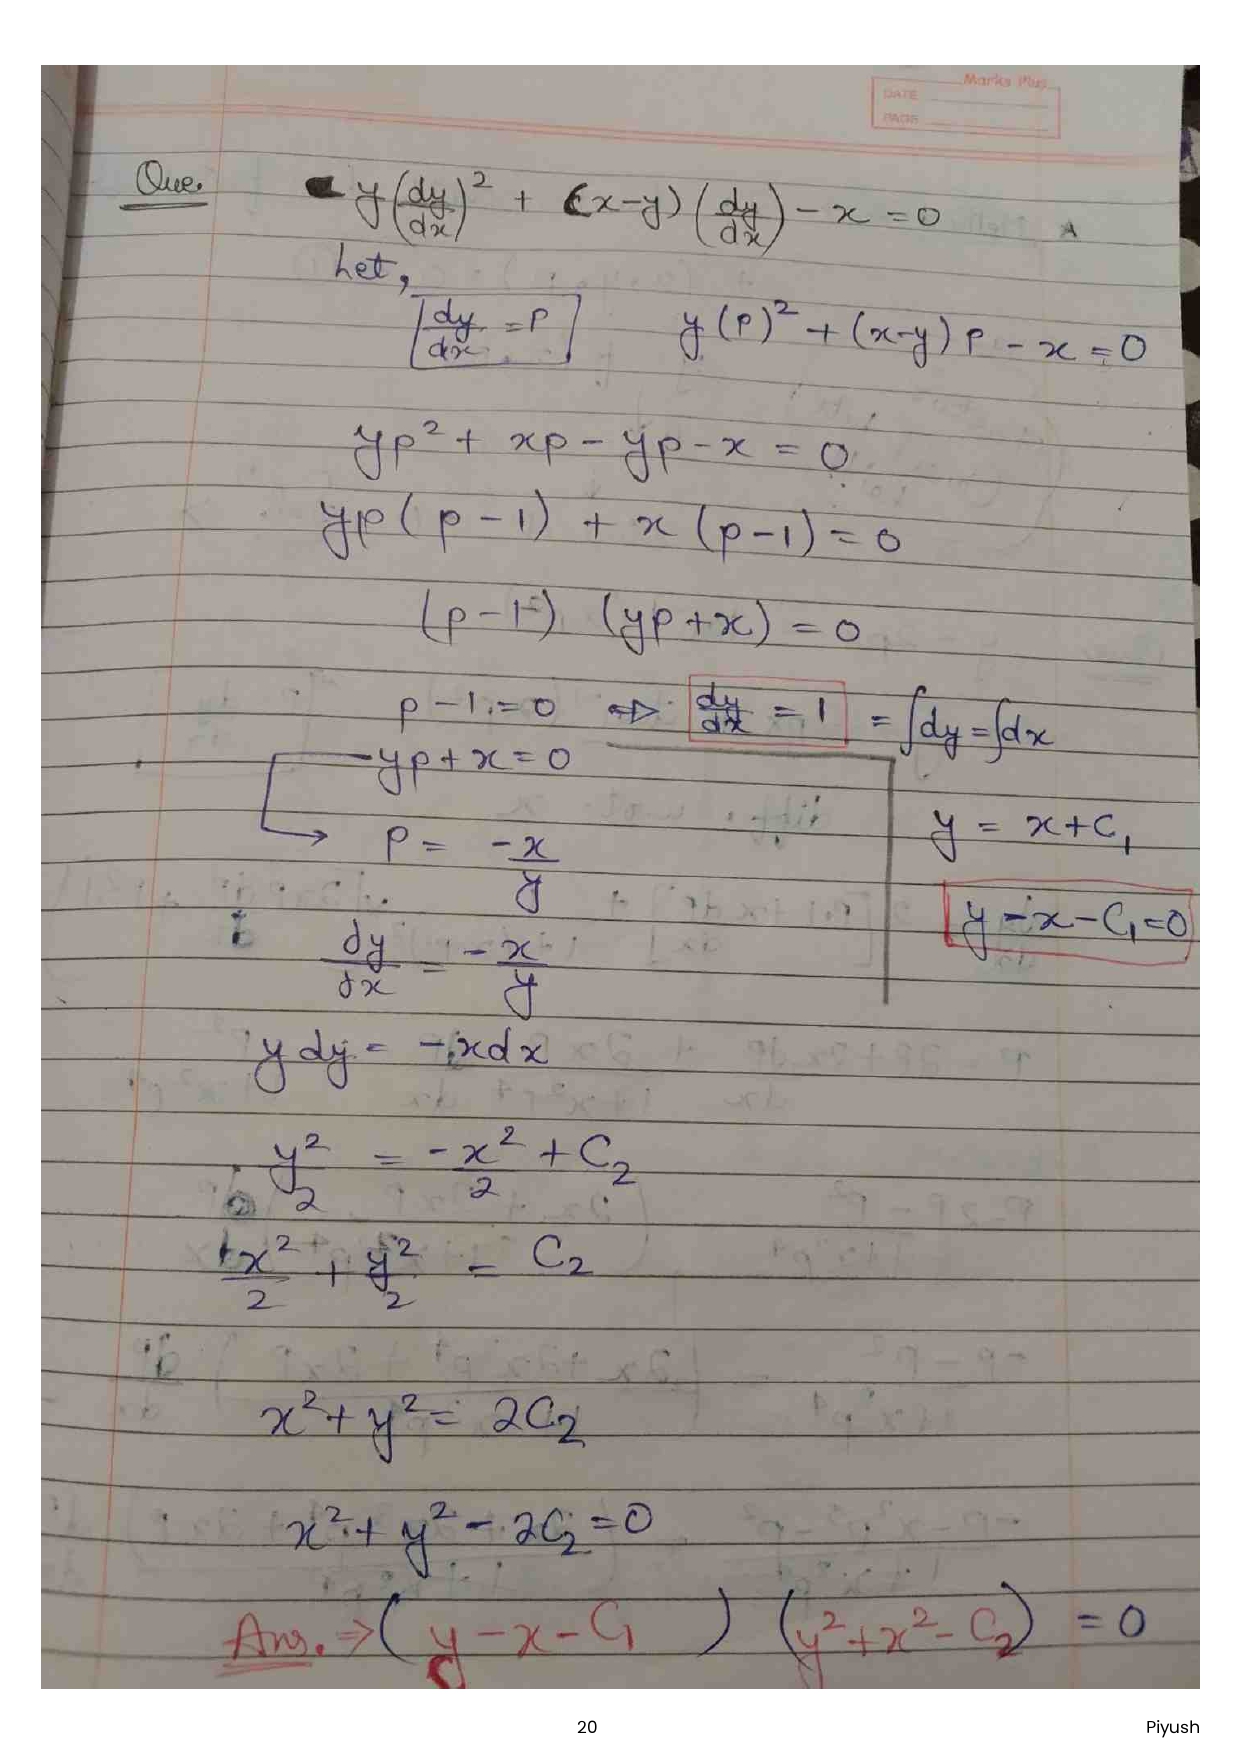 Marks Plus
DATE
PAGE
Que. y(dy/dx)² + (x-y)(dy/dx) - x = 0
Let,
dy/dx = P    y(P)² + (x-y)P - x = 0
yp² + xp - yp - x = 0
yp(p-1) + x(p-1) = 0
(p-1) (yp+x) = 0
p-1 = 0 ⇒ dy/dx = 1 = ∫dy = ∫dx
yp + x = 0
y = x + C₁
P = -x/y
y - x - C₁ = 0
dy/dx = -x/y
y dy = -x dx
y²/2 = -x²/2 + C₂
x²/2 + y²/2 = C₂
x² + y² = 2C₂
x² + y² - 2C₂ = 0
Ans. ⇒ (y - x - C₁) (y² + x² - C₂) = 0
20
Piyush